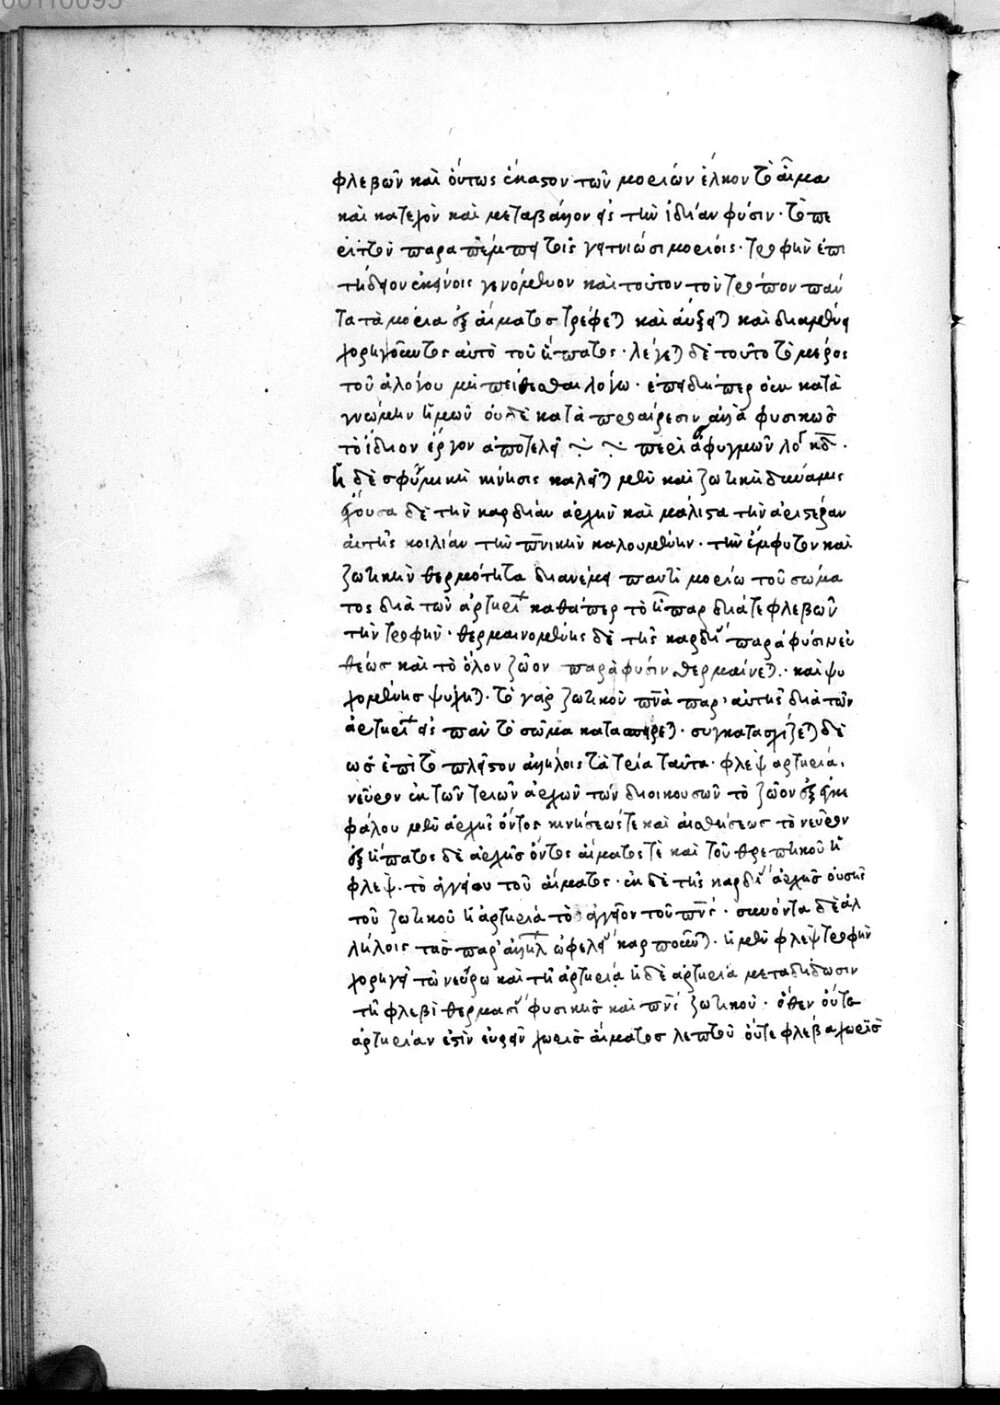 00110095
φλεβῶν καὶ οὕτως ἕκαστον τῶν μορίων ἕλκον τὸ αἷμα
καὶ κατέχον καὶ μεταβάλλον εἰς τὴν ἰδίαν φύσιν· τὸ πε
ριττὸν παραπέμπει τοῖς γειτνιῶσι μορίοις· τροφὴν ἐπι
τήδειον ἐκείνοις γενόμενον καὶ τοῦτον τὸν τρόπον πάν
τα τὰ μόρια ἐξ αἵματος τρέφεται καὶ αὔξεται καὶ διαμένει
χορηγοῦντος αὐτὸ τοῦ ἥπατος· λέγεται δὲ τοῦτο τὸ μέρος
τοῦ ἀλόγου μὴ πείθεσθαι λόγω· ἐπειδήπερ οὐ κατὰ
γνώμην ἡμῶν οὐδὲ κατὰ προαίρεσιν ἀλλὰ φυσικῶς
τὸ ἴδιον ἔργον ἀποτελεῖ περὶ σφυγμῶν λο κδ·
ἡ δὲ σφυγμικὴ κίνησις καλεῖται μὲν καὶ ζωτικὴ δύναμις
ἔχουσα δὲ τὴν καρδίαν ἀρχὴν καὶ μάλιστα τὴν ἀριστερὰν
αὐτῆς κοιλίαν τὴν πνικὴν καλουμένην· τὴν ἔμφυτον καὶ
ζωτικὴν θερμότητα διανέμει παντὶ μορίω τοῦ σώμα
τος διὰ τῶν ἀρτηριῶν καθάπερ τὸ ἧπαρ διά τε φλεβῶν
τὴν τροφήν· θερμαινομένης δὲ τῆς καρδίας παρὰ φύσιν εὐ
θέως καὶ τὸ ὅλον ζῶον παρὰ φύσιν θερμαίνεται· καὶ ψυ
χομένης ψύχεται· τὸ γὰρ ζωτικὸν πνα παρ' αὐτῆς διὰ τῶν
ἀρτηριῶν εἰς πᾶν τὸ σῶμα κατασπείρεται· συγκατασχίζεται δὲ
ὡς ἐπὶ τὸ πλεῖστον ἀλλήλοις τὰ τρία ταῦτα· φλέψ ἀρτηρία·
νεῦρον ἐκ τῶν τριῶν ἀρχῶν τῶν διοικουσῶν τὸ ζῶον ἐξ ἐγκε
φάλου μὲν ἀρχῆς ὄντος κινήσεώς τε καὶ αἰσθήσεως τὸ νεῦρον
ἐξ ἥπατος δὲ ἀρχῆς ὄντος αἵματός τε καὶ τοῦ θρεπτικοῦ ἡ
φλεψ· τὸ ἀγγεῖον τοῦ αἵματος· ἐκ δὲ τῆς καρδίας ἀρχῆς οὔσης
τοῦ ζωτικοῦ ἡ ἀρτηρία τὸ ἀγγεῖον τοῦ πνς· συνόντα δὲ ἀλ
λήλοις τὰς παρ' ἀλλήλων ὠφελείας καρποῦνται· ἡ μὲν φλεψ τροφὴν
χορηγεῖ τῶ νεύρω καὶ τῆ ἀρτηρία ἡ δὲ ἀρτηρία μεταδίδωσιν
τῆ φλεβὶ θερμασίας φυσικῆς καὶ πνς ζωτικοῦ· ὅθεν οὔτε
ἀρτηρίαν ἐστὶν εὑρεῖν χωρὶς αἵματος λεπτοῦ οὔτε φλέβα χωρὶς